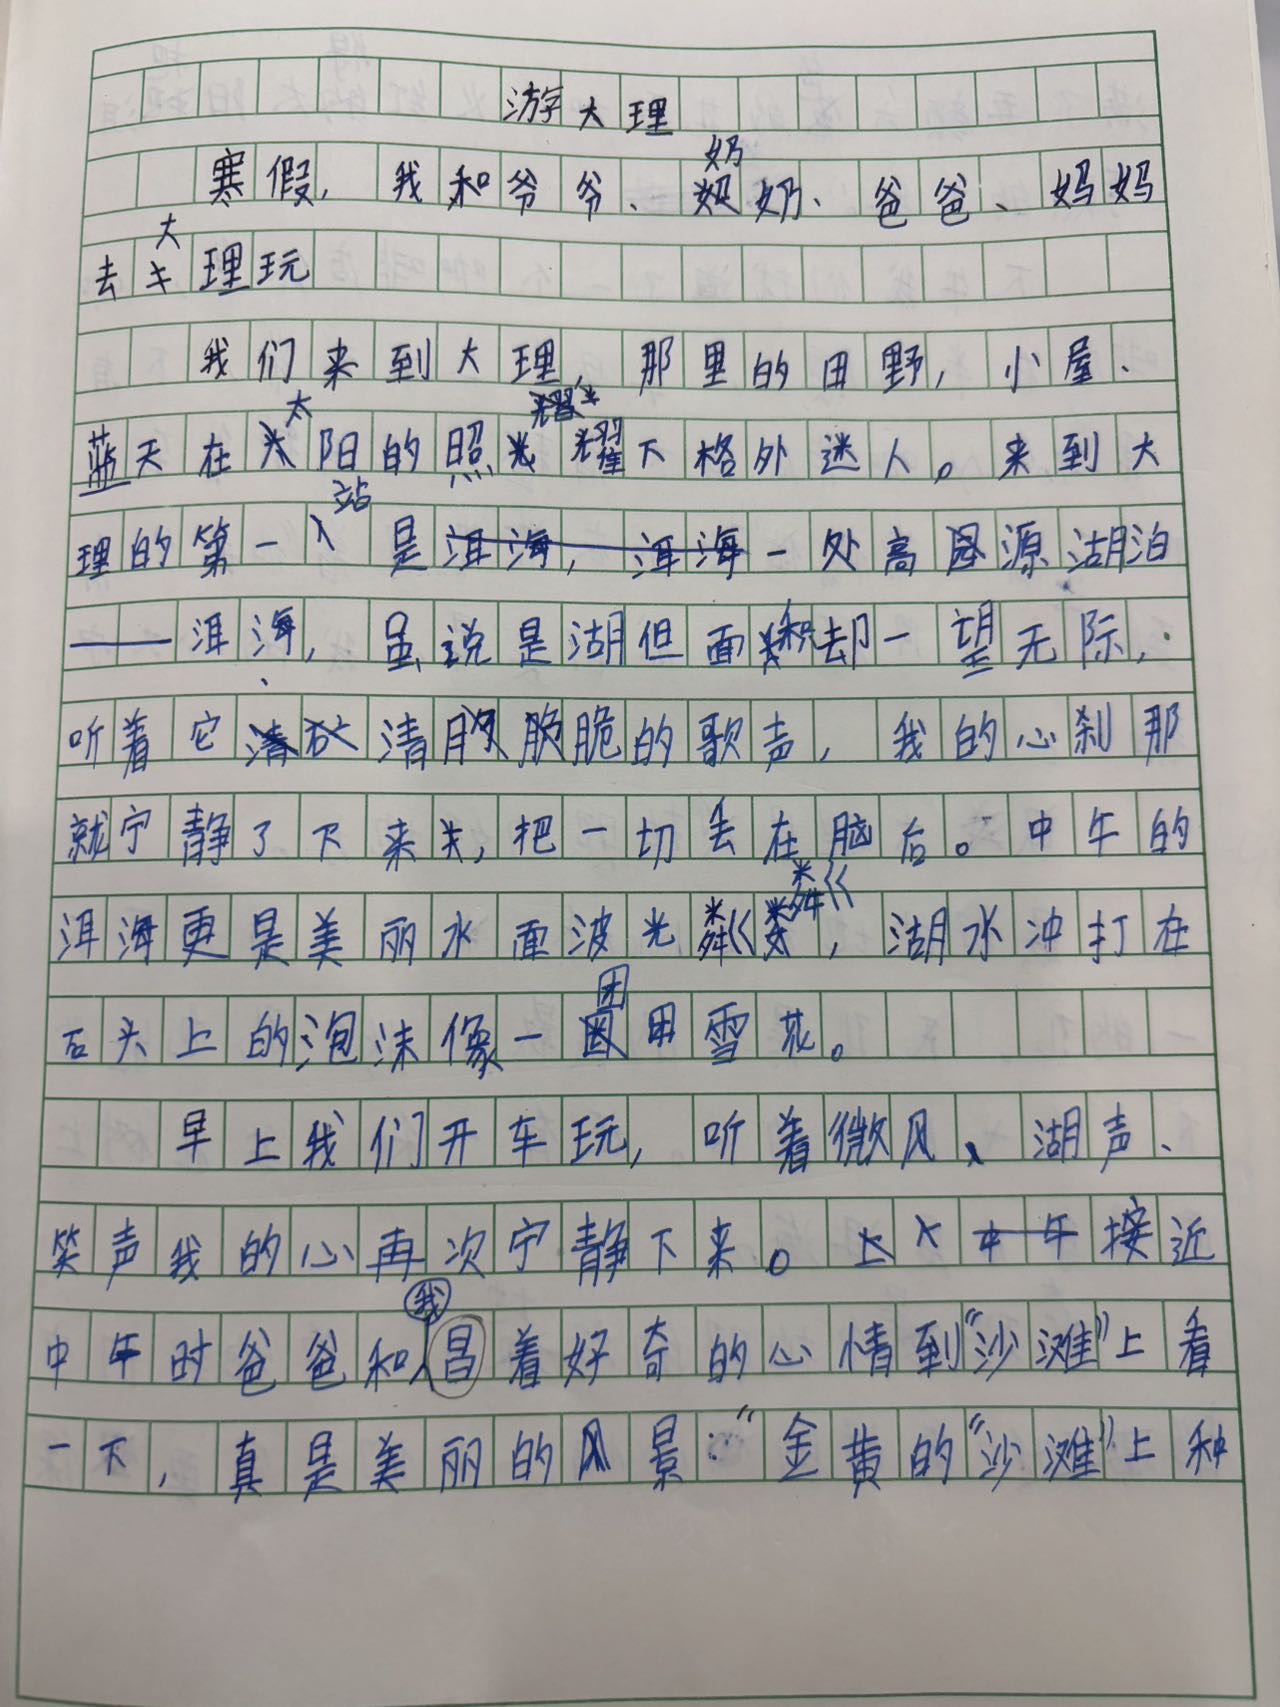 游大理
寒假，我和爷爷、奶奶、爸爸、妈妈
去大理玩
我们来到大理，那里的田野，小屋、
蓝天在太阳的照耀下格外迷人。来到大
理的第一站是一处高源湖泊
——洱海，虽说是湖但面积却一望无际，
听着它清脆的歌声，我的心刹那
就宁静了下来，把一切丢在脑后。中午的
洱海更是美丽水面波光粼粼，湖水冲打在
石头上的泡沫像一团雪花。
早上我们开车玩，听着微风、湖声、
笑声我的心再次宁静下来。接近
中午时爸爸和我着好奇的心情到“沙滩”上看
一下，真是美丽的风景：“金黄的“沙滩”上种